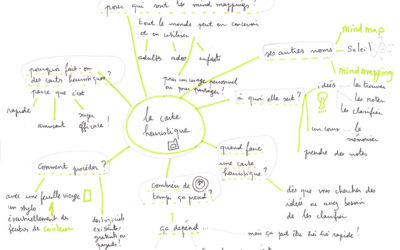 pour qui sont les mind mappings ?
tout le monde peut en concevoir
et en utiliser
adultes
ados
enfants
pour un usage personnel
ou pour partager !
ses autres noms
mind map
Soleil
mind mapping
pourquoi fait-on
des carts heuristiques ?
parce que c'est
rapide
amusant
super
efficace !
la carte
heuristique
à quoi elle sert ?
idées
les trouver
les noter
les clarifier
un cours
le
mémoriser
prendre des notes
quand faire
une carte
heuristique ?
dès que vous cherchez des
idées ou avez besoin
de les clarifier
Comment procéder ?
avec une feuille vierge
un stylo
éventuellement des
feutres de couleur
des logiciels
existent,
gratuits ou
payants !
combien de
temps ça prend ?
ça dépend
mais ça peut être très rapide !